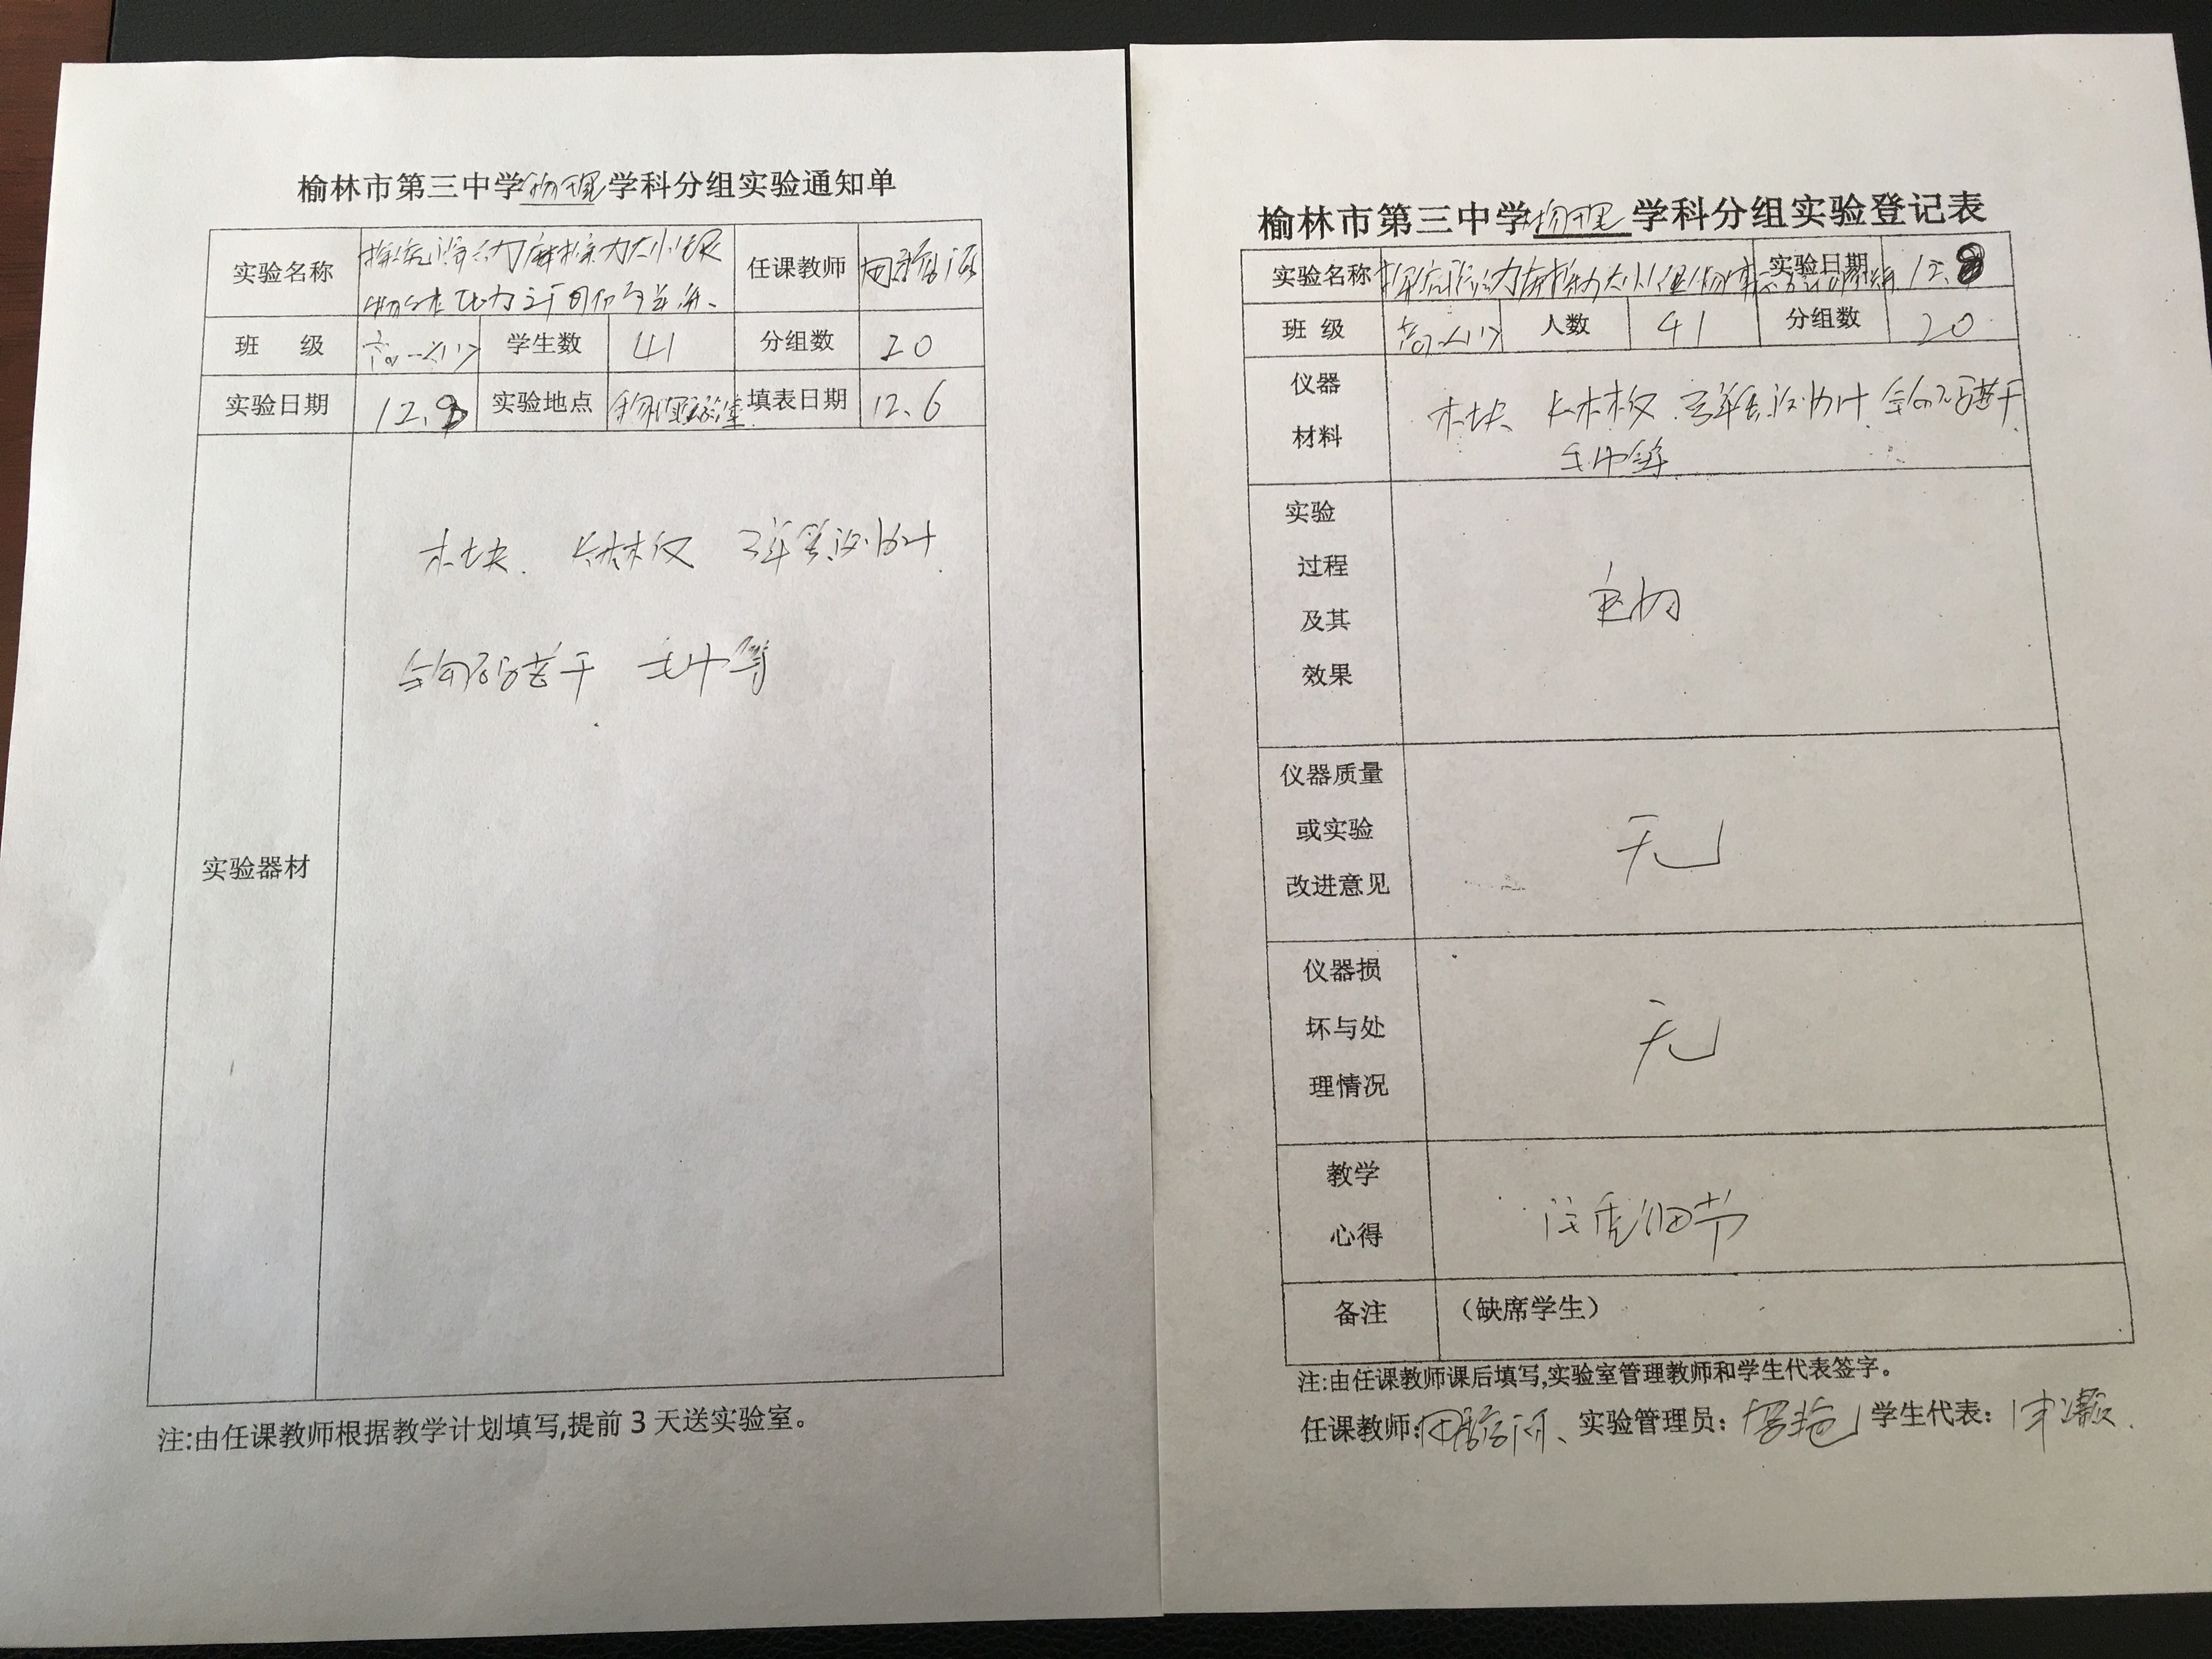 榆林市第三中学物理学科分组实验通知单
实验名称 探究滑动摩擦力大小跟 任课教师
物体压力之间的关系.
班 级 高一<1> 学生数 41 分组数 20
实验日期 12.8 实验地点 物理实验室 填表日期 12.6
实验器材
木块 长木板 弹簧测力计
钩码若干 毛巾等
注:由任课教师根据教学计划填写,提前3天送实验室。
榆林市第三中学物理学科分组实验登记表
实验名称 探究滑动摩擦力大小 实验日期 12.8
班 级 高一<1> 人数 41 分组数 20
仪器
材料
木块 长木板 弹簧测力计 钩码若干
毛巾等
实验
过程
及其
效果
仪器质量
或实验
改进意见
无
仪器损
坏与处
理情况
无
教学
心得
注重细节
备注 （缺席学生）
注:由任课教师课后填写,实验室管理教师和学生代表签字。
任课教师: 实验管理员: 学生代表: